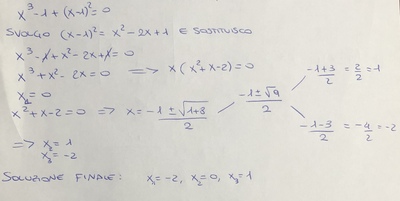 x³-1+(x-1)²=0
SVOLGO (x-1)² = x²-2x+1 E SOSTITUISCO
x³-1+x²-2x+1=0
x³+x²-2x=0 => x(x²+x-2)=0
x₁=0
x²+x-2=0 => x = -1±√1+8/2 -1±√9/2 -1+3/2 = 2/2 = -1
-1-3/2 = -4/2 = -2
=> x₂= 1
x₃= -2
SOLUZIONE FINALE: x₁=-2, x₂=0, x₃=1